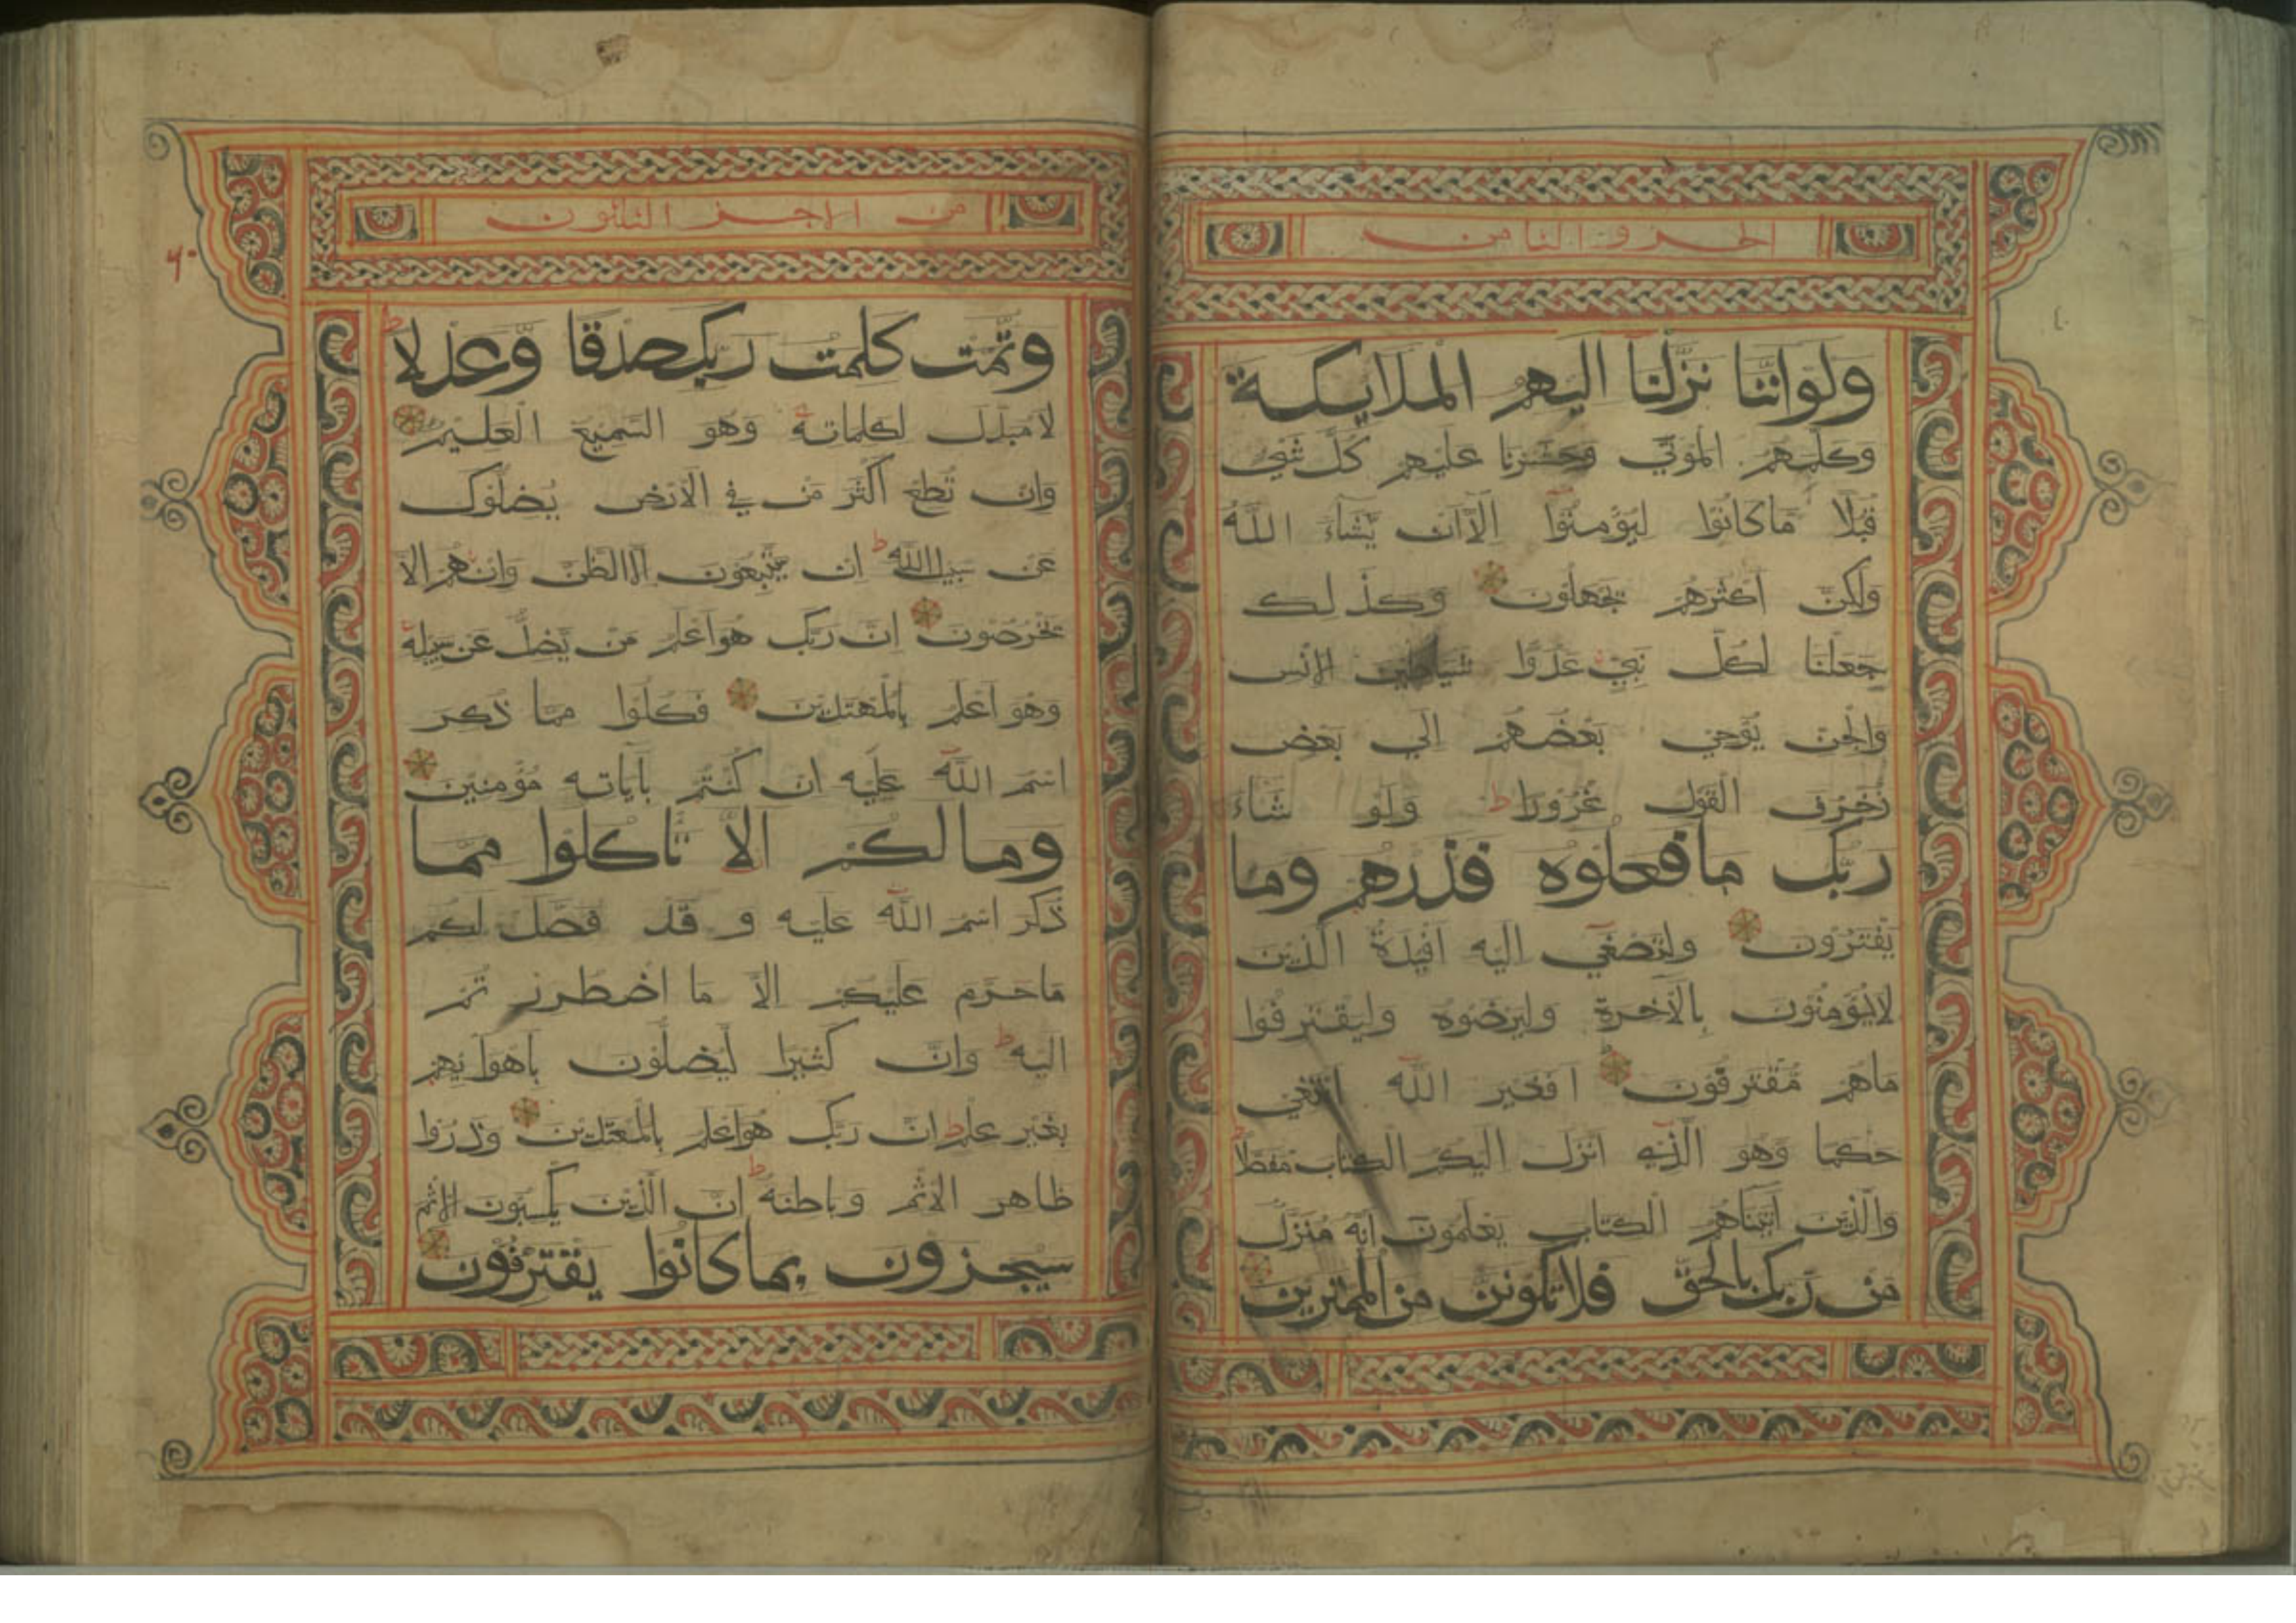 الجزو الثامن
ولو اننا نزلنا اليهم الملايكة
وكلمهم الموتي وحشرنا عليهم كل شي
قبلا ما كانوا ليؤمنوا الا ان يشاء الله
ولكن اكثرهم يجهلون وكذلك
جعلنا لكل نبي عدوا شياطين الانس
والجن يوحي بعضهم الي بعض
زخرف القول غرورا ط ولو شاء
ربك ما فعلوه فذرهم وما
يفترون ولتصغي اليه افيدة الذين
لا يؤمنون بالآخرة وليرضوه وليقترفوا
ما هم مقترفون افغير الله ابتغي
حكما وهو الذي انزل اليكم الكتاب مفصلا ط
والذين اتيناهم الكتاب يعلمون انه منزل
من ربك بالحق فلا تكونن من الممترين
من الاجز الثلثون
وتمت كلمت ربك صدقا وعدلا ط
لا مبدل لكلماته وهو السميع العليم
وان تطع اكثر من في الارض يضلوك
عن سبيل الله ط ان يتبعون الا الظن وان هم الا
يخرصون ان ربك هو اعلم من يضل عن سبيله
وهو اعلم بالمهتدين فكلوا مما ذكر
اسم الله عليه ان كنتم بآياته مؤمنين
وما لكم الا تاكلوا مما
ذكر اسم الله عليه و قد فصل لكم
ما حرم عليكم الا ما اضطررتم
اليه ط وان كثيرا ليضلون باهوايهم
بغير علم ط ان ربك هو اعلم بالمعتدين وذروا
ظاهر الاثم وباطنه ط ان الذين يكسبون الاثم
سيجزون بما كانوا يقترفون